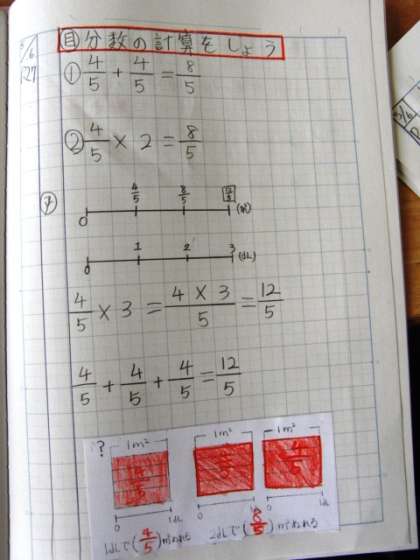 5/6 27
目 分数の計算をしよう
① 4/5 + 4/5 = 8/5
② 4/5 × 2 = 8/5
0 4/5 8/5 12/5 (㎡)
0 1 2 3 (dL)
4/5 × 3 = 4×3/5 = 12/5
4/5 + 4/5 + 4/5 = 12/5
? 1m² 1m² 1m²
0 1dL 0 0 1dL
1dLで(4/5)㎡ぬれる 2dLで(8/5)㎡ぬれる